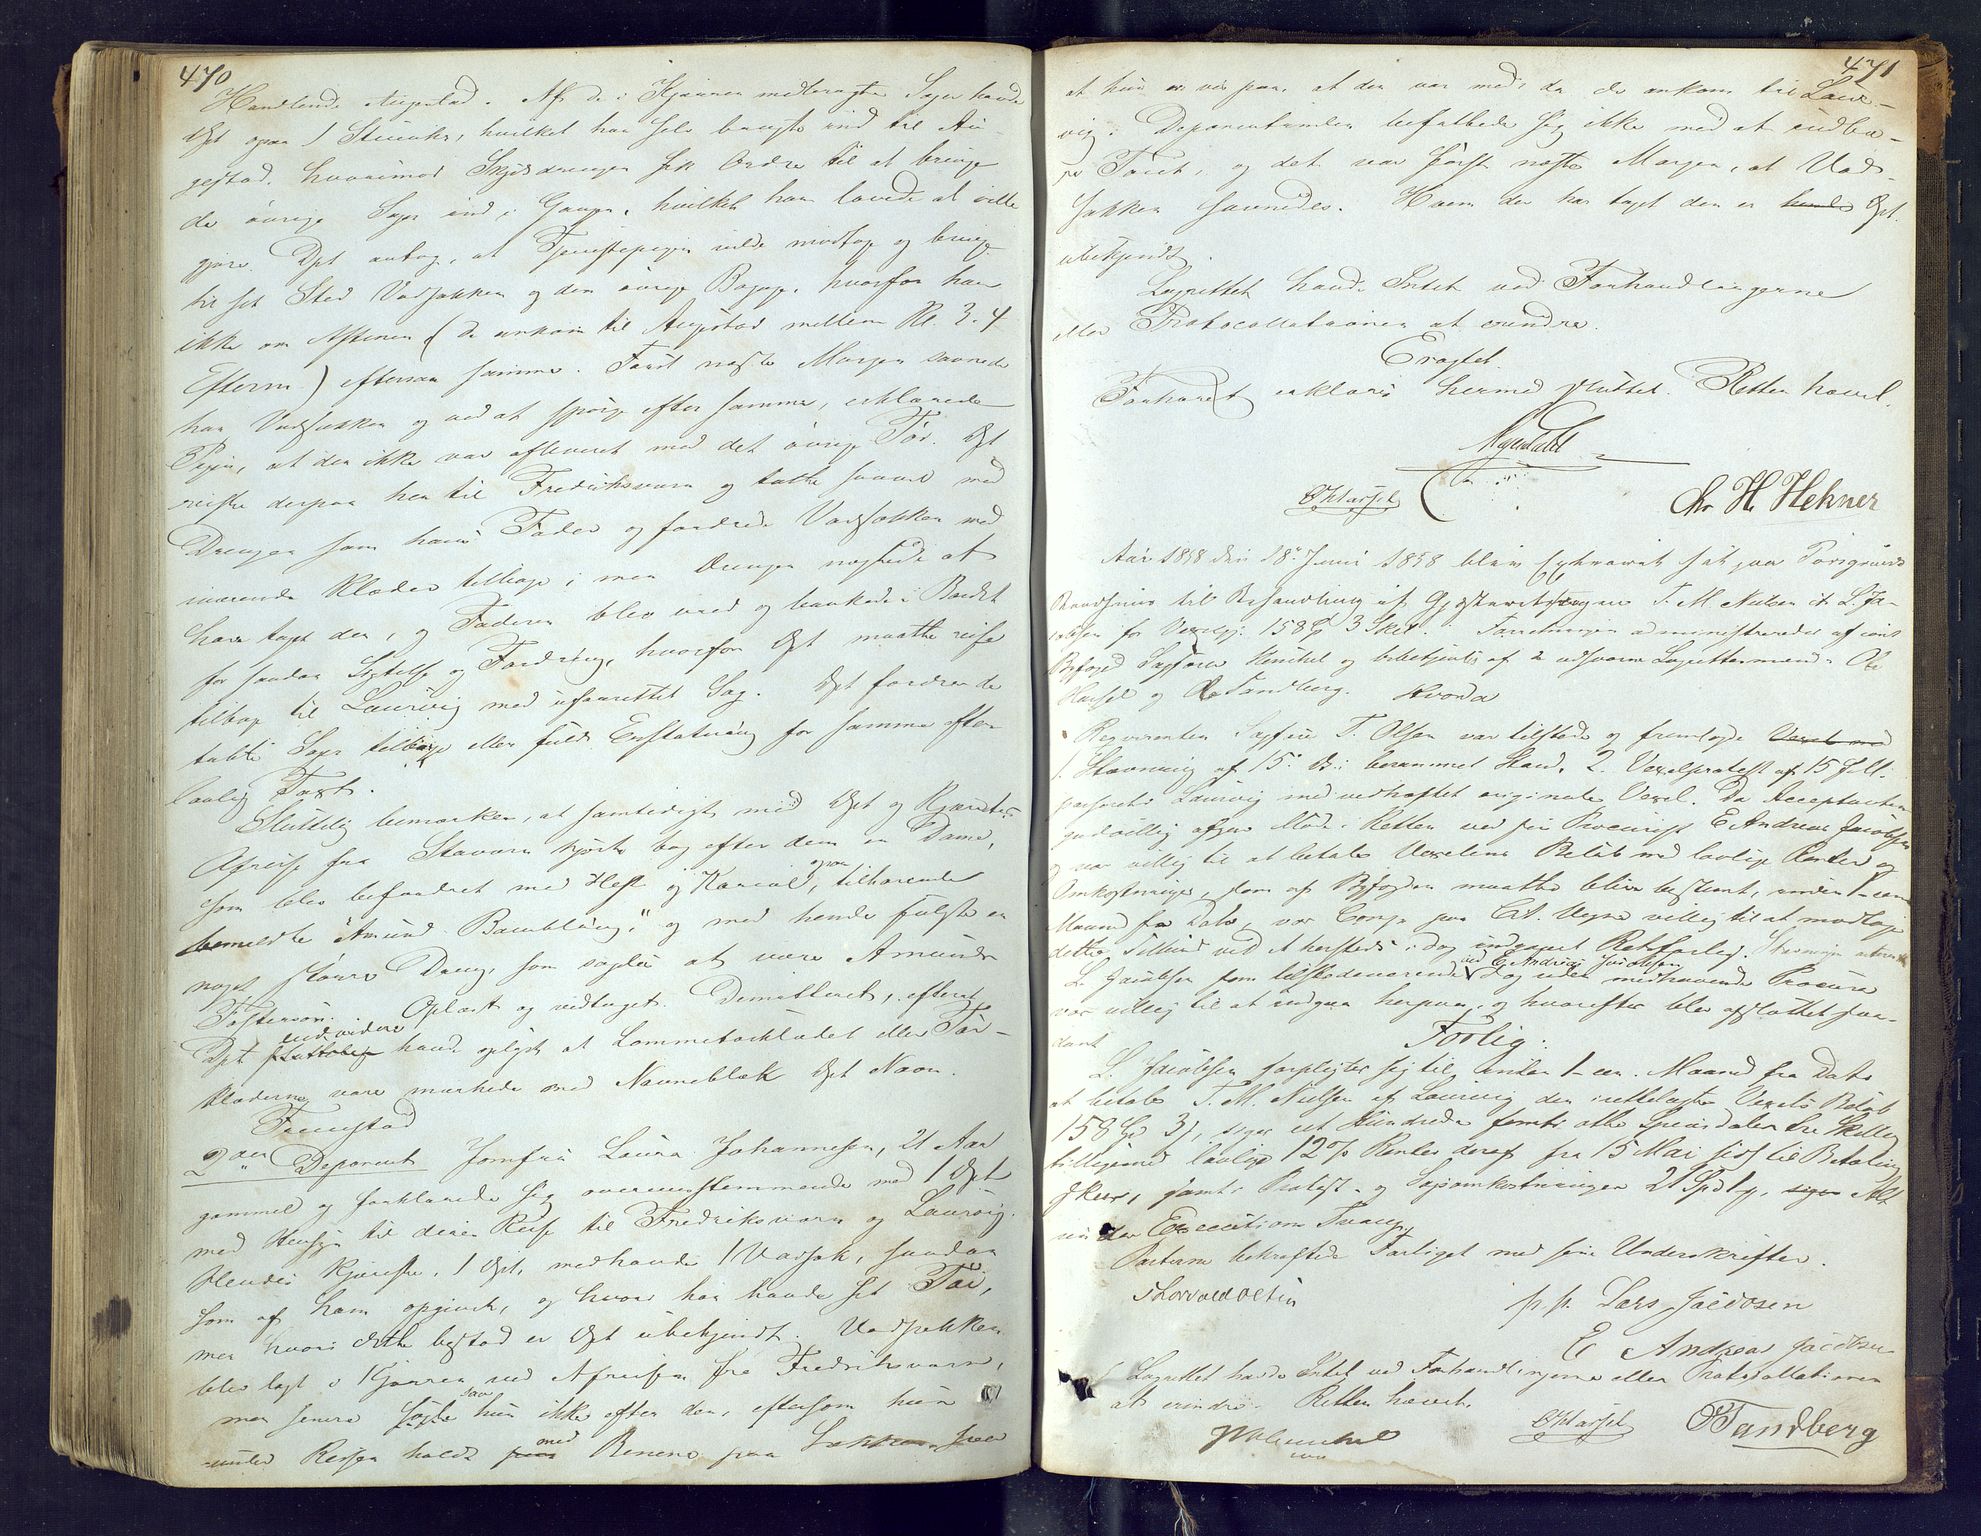 470
Handlende Augestad. Af de i Kjærren medbragte Sager havde
Dpt ogsaa 1 Stueuhr, hvilket han selv bragte ind til Au-
gestad, hvorimod Skydsdrengen fik Ordre til at bringe
de øvrige Sager ind i Gangen, hvilket han lovede at ville
gjøre. Dpt antog, at Tjenestepigen vilde modtage og bringe
til sit Sted Vadsækken og den øvrige Bagage, hvorfor han
ikke om Aftenen (de ankom til Augestad mellem Kl. 3-4
Efterm) eftersaa samme. Først næste Morgen savnede
han Vadsækken og ved at spørge efter samme, erklærede
Pigen, at den ikke var afleveret med det øvrige Tøi. Dpt
reiste derpaa hen til Fredriksværn og talte saavel med
Drengen som hans Fader og fordrede Vadsækken med
iværende Klæder tilbage, men Drengen nægtede at
have taget den, og Faderen blev vred og bankede i Bordet
for saadan Sigtelse og Fordring, hvorfor Dpt maatte reise
tilbage til Laurvig med uforrettet Sag. Dpt fordrer de
tabte Sager tilbage eller fuld Erstatning for samme efter
lovlig Taxt.
Sluttelig bemærkes, at samtidigt med Dpt og Kjærestes
Afreise fra Stavern kjørte bag efter dem en Dame,
som blev befordret med Hest og Kariol, ogsaa tilhørende
bemeldte "Amund Bambling," og med hende fulgte en
noget større Dreng, som sagdes at være Amunds
Fostersøn. Oplæst og vedtaget. Demitteret, efterat
Dpt endvidere havde oplyst at Lommetørklædet eller Tør-
klæderne vare mærkede med Navneblæk Dpt Navn.
Fremstod
2den Deponent Jomfru Laura Johannesen, 21 Aar
gammel og forklarede sig overensstemmende med 1 Dpt
med Hensyn til deres Reise til Fredriksværn og Laurvig.
Hendes Kjæreste, 1 Dpt, medhavde 1 Vadsæk, saadan
som af ham opgivet, og hvori han havde sit Tøi,
men hvori dette bestod er Dpt ubekjendt. Vadsækken
blev lagt i Kjærren ved Afreisen fra Fredriksværn,
men senere saa hun ikke efter den, eftersom hun
under Reisen holdt med Benene paa Sækken, saa
471
at hun er vis paa, at den var med, da de ankom til Laur-
vig. Deponentinden befattede sig ikke med at indbæ-
re Tøiet, og det var først næste Morgen, at Vad-
sækken savnedes. Hvem der har taget den er Dpt.
ubekjendt.
Lagrettet havde Intet ved Forhandlingerne
eller Protocollationen at erindre.
Eragtet
Forhøret erklæres hermed sluttet. Retten hævet.
O Hassel
Chr H. Hehner
Aar 1858 den 18de Juni 1858 blev Extraret sat paa Porsgrunds
Raadhuus til Behandling af Gjæsteretssagen T. M. Nielsen ctr L. Ja-
cobsen for Vexelgj. 158 Spd 3 Skill. Forretningen administreredes af const
Byfoged Sagfører Henchel og bekjentes af 2 edsvorne Lagrettesmænd: Ole
Hassel og O Tandberg. Hvorda
Reqvirenten Sagfører T. Olsen var tilstede og fremlagde
1. Stævning af 15de ds: berammet Sted. 2. Vexelprotest af 15
Laurvig med vedhæftet original Vexel. Da Acceptanten
godvillig afgav Møde i Retten ved sin Procurist E Andreas Jacobsen
og var villig til at betale Vexelens Beløb med lovlige Renter og
Omkostninger, som af Byfogden maatte blive bestemt, inden 1-een
Maaned fra Dato, var Comp. paa Cit. Vegne villig til at modtage
dette Tilbud ved et herstedt i dag indgaaet Retsforlig.
L. Jacobsen som tilstedeværende ved E. Andreas Jacobsen medhavende Procura
var villig til at indgaa herpaa, og hvorefter blev afsluttet saa-
dant
Forlig.
L. Jacobsen forpligter sig til inden 1-een Maaned fra Dato
at betale T. M. Nielsen af Laurvig den irettelagte Vexels Beløb
158 Spd 3 s, siger eet Hundrede femti otte Speciedaler tre Skilling
tilligemed lovlige 12 % Renter deraf fra 15 Mai sidst til Betaling
skeer, samt Protest- og Sagsomkostninger 2 Spd, Alt
under Executions Tvang.
Parterne bekræftede Forliget med sine Underskrifter.
Thorvald Olsen
p. p. Lars Jacobsen
E Andreas Jacobsen
Lagrettet havde Intet ved Forhandlingerne eller Protocollationen
at erindre. Retten hævet.
O Hassel
O Tandberg